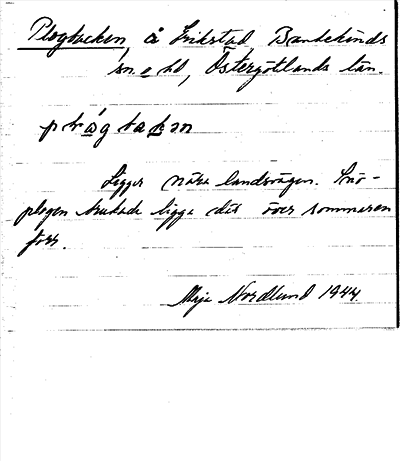 Plogbacken, å Erikstad, Bankekinds
sn. o hd, Östergötlands län.
plogbakən
Ligger nära landsvägen. Snö-
plogen brukade ligga där över sommaren
förr.
Maja Nordlund 1944.